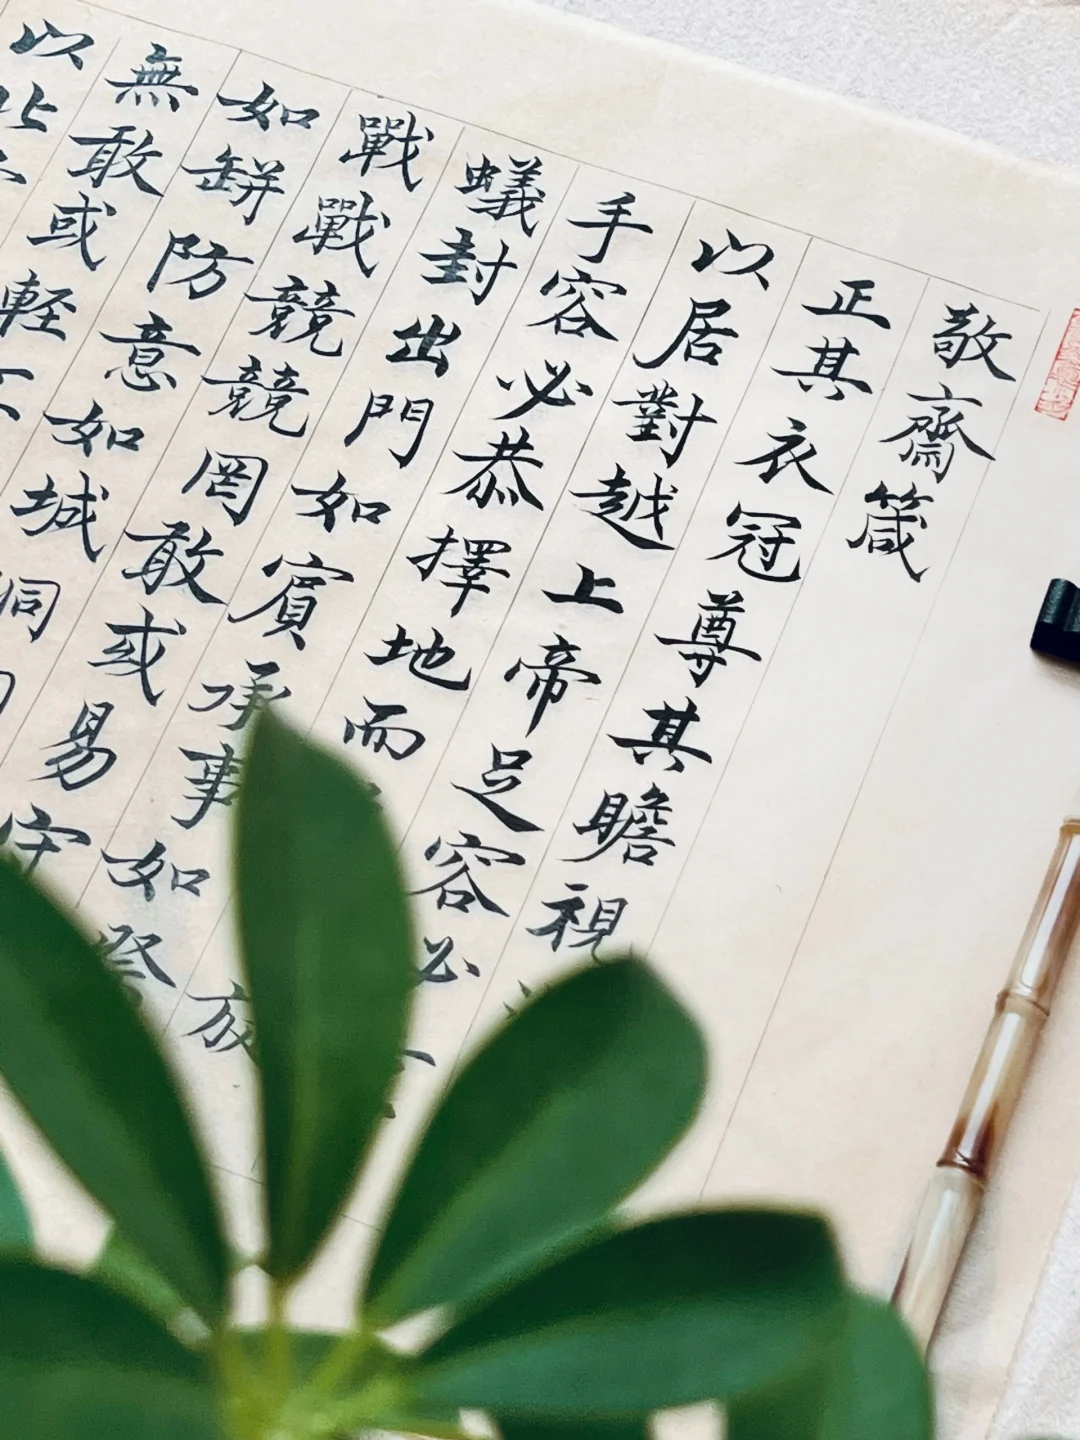 敬齋箴
正其衣冠尊其瞻視
以居對越上帝足容必
手容必恭擇地而
蟻封出門如賓承事如祭
戰戰競競罔敢或易守
如缾防意如城洞
無敢或軽不
以北